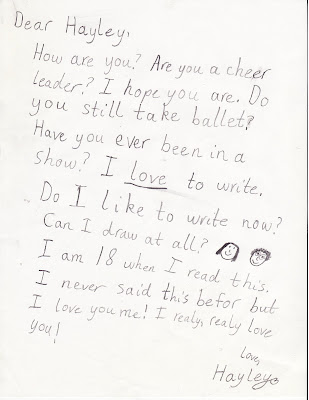 Dear Hayley,
How are you? Are you a cheer
leader? I hope you are. Do
you still take ballet?
Have you ever been in a
show? I love to write.
Do I like to write now?
Can I draw at all?
I am 18 when I read this.
I never said this befor but
I love you me! I realy, realy love
you!
Love,
Hayley